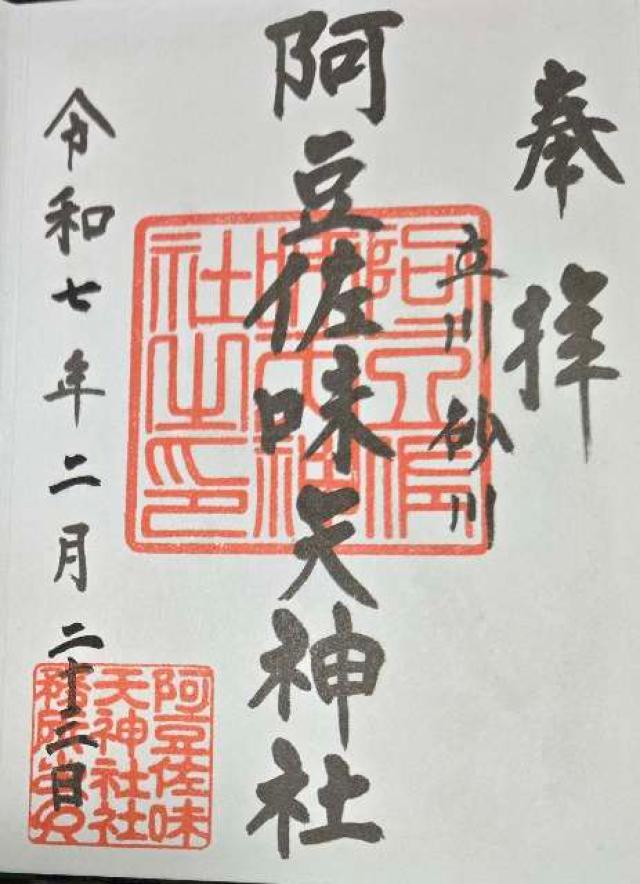 奉拝
立川砂川
阿豆佐味天神社
令和七年二月二十三日
阿豆佐味
天神社社
務所
社之印